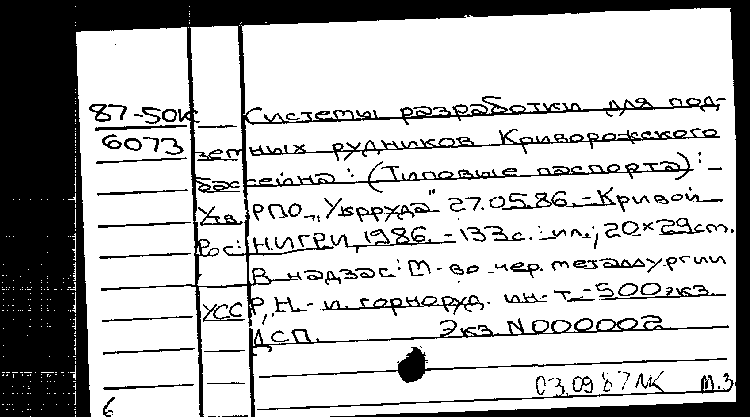 87-50к Системы разработки для под-
6073 земных рудников Криворожского
бассейна: (Типовые паспорта): -
Утв. РПО „Укрруда" 27.05.86. - Кривой
Рог: НИГРИ, 1986. - 133с.: ил.; 20×29см.
В надзаг: М-во чер. металлургии
УССР, Н.-и. горноруд. ин-т. - 500экз.
ДСП. Экз N000002
03.09 87 М.З
6